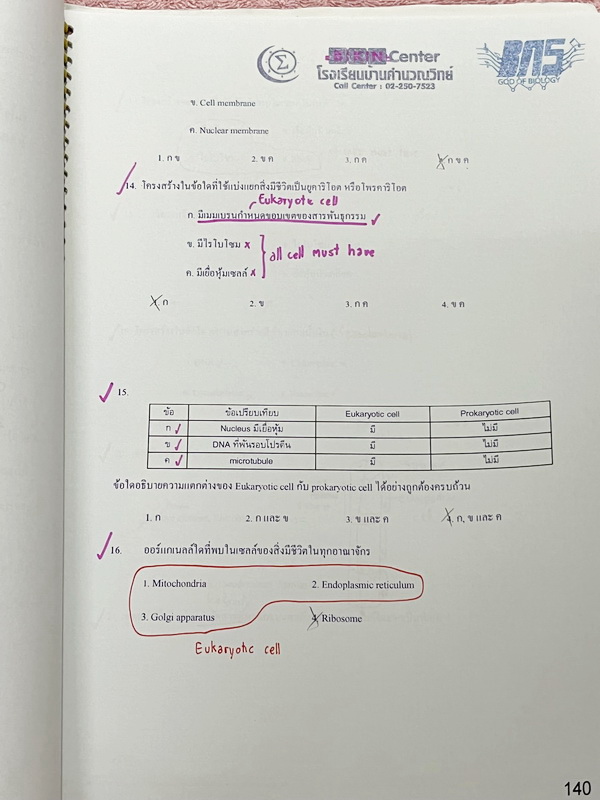 Center
โรงเรียนบ้านคำนวณวิทย์
Call Center : 02-250-7523
GOD OF BIOLOGY
ข. Cell membrane
ค. Nuclear membrane
1. ก ข 2. ข ค 3. ก ค 4. ก ข ค
14. โครงสร้างในข้อใดที่ใช้แบ่งแยกสิ่งมีชีวิตเป็นยูคาริโอต หรือโพรคาริโอต
Eukaryotic cell
ก. มีเมมเบรนกำหนดขอบเขตของสารพันธุกรรม
ข. มีไรโบโซม x
all cell must have
ค. มีเยื่อหุ้มเซลล์ x
1. ก 2. ข 3. ก ค 4. ข ค
15.
ข้อ ข้อเปรียบเทียบ Eukaryotic cell Prokaryotic cell
ก Nucleus มีเยื่อหุ้ม มี ไม่มี
ข DNA ที่พันรอบโปรตีน มี ไม่มี
ค microtubule มี ไม่มี
ข้อใดอธิบายความแตกต่างของ Eukaryotic cell กับ prokaryotic cell ได้อย่างถูกต้องครบถ้วน
1. ก 2. ก และ ข 3. ข และ ค 4. ก, ข และ ค
16. ออร์แกเนลล์ใดที่พบในเซลล์ของสิ่งมีชีวิตในทุกอาณาจักร
1. Mitochondria 2. Endoplasmic reticulum
3. Golgi apparatus 4. Ribosome
Eukaryotic cell
140